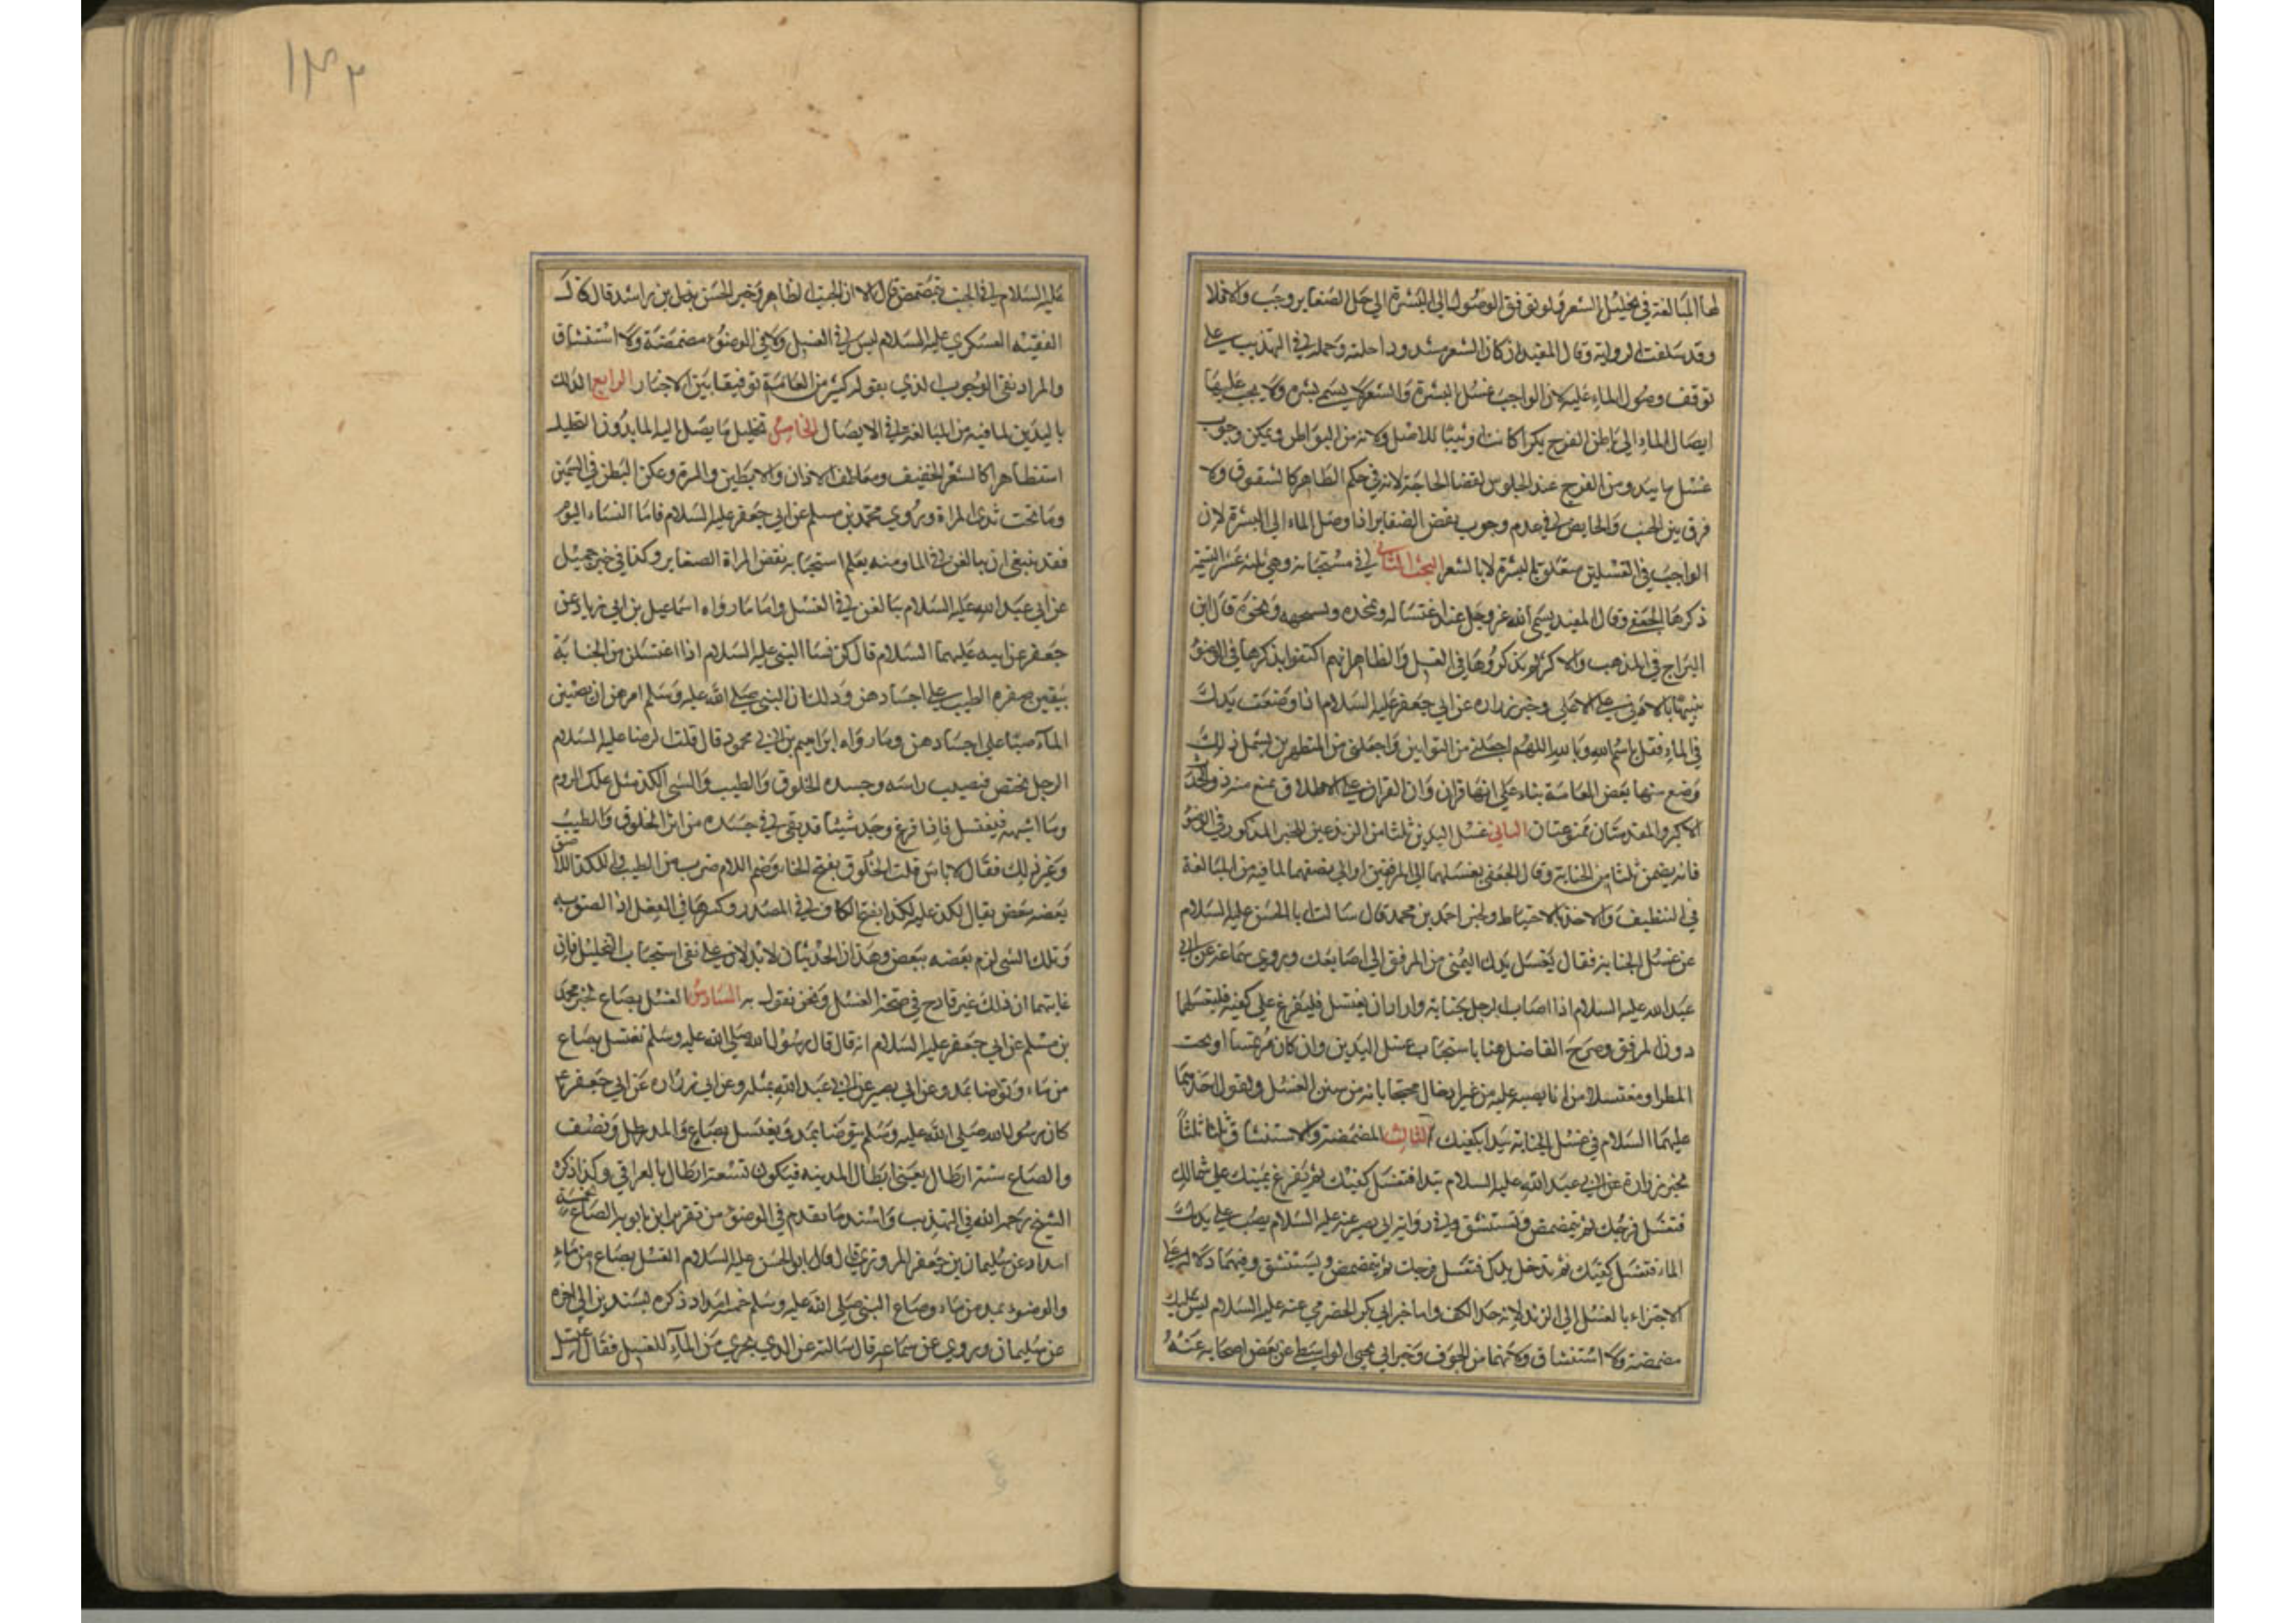 لها المبالغة في تخليل الشعر ولو توقف الوصول الى البشرة الى حل الضفاير وجب والا فلا
وقد سلفت الرواية وقال المفيد ان كان الشعر مشدودا حلته وحمله في التهذيب على
توقف وصول الماء عليه لان الواجب غسل البشرة والشعر لا يسمى بشرة ولا يجب عليها
ايصال الماء الى باطن الفرج بكرا كانت او ثيبا للاصل ولانه من البواطن ويمكن وجوب
غسل ما يبدو من الفرج عند الجلوس لقضا الحاجة لانه في حكم الظاهر كالشقوق ولا
فرق بين الجنب والحايض في عدم وجوب نقض الضفاير اذا وصل الماء الى البشرة لان
الواجب في الغسلين متعلق بالبشرة لا بالشعر البحث الثاني في مستحباته وهي ثلثة عشر التسمية
ذكرها الجعفي وقال المفيد يسمى الله عز وجل عند اغتساله ويمجده ويسبحه ونحوه قال ابن
البراج في المذهب والاكثر لم يذكروها في الغسل والظاهر انهم اكتفوا بذكرها في الوضوء
تنبيها بالادنى على الاعلى وخبر زراره عن ابي جعفر عليه السلام اذا وضعت يدك
في الماء فقل باسم الله وبالله اللهم اجعلني من التوابين واجعلني من المتطهرين يشمل ذلك
وضع منها بعض العامة بناء على انها قران وان القران على الاطلاق يمنع منه ذو الحدث
الاكبر والمقدمتان ممنوعتان الثاني غسل اليدين ثلثا من الزندين الخبر المذكور في الوضوء
فانه يضمن ثلثا من الجنابة وقال الجعفي يغسلهما الى المرفقين او الى نصفهما لما فيه من المبالغة
في التنظيف والاخذ بالاحتياط ولخبر احمد بن محمد قال سالت ابا الحسن عليه السلام
عن غسل الجنابة فقال يغسل يدك اليمنى من المرفق الى اصابعك ويروى سماعة عن ابي
عبد الله عليه السلام اذا اصاب الرجل جنابة واراد ان يغتسل فليفرغ على كفيه فليغسلهما
دون المرفق وصرح الفاضل هنا باستحباب غسل اليدين وان كان مرتمسا او تحت
المطر او مغتسلا من انا يصبه عليه من غير ادخال محتجا بانه من سنن الغسل ولقول احدهما
عليهما السلام في غسل الجنابة تبدا بكفيك الثالث المضمضة والاستنشاق ثلثا ثلثا
لخبر زرارة عن ابي عبد الله عليه السلام تبدا فتغسل كفيك ثم تفرغ بيمينك على شمالك
فتغسل فرجك ثم تمضمض وتستنشق وفي رواية ابي بصير عنه عليه السلام يصب على يدك
الماء فتغسل كفيك ثم تدخل يدك فتغسل فرجك ثم تمضمض ويستنشق وفيهما دلالة على
الاجتزاء بالغسل الى الزند لانه حد الكف واما خبر ابي بكر الحضرمي عنه عليه السلام ليس عليك
مضمضة ولا استنشاق ولانهما من الجوف وخبر ابي يحيى الواسطي عن بعض اصحابه عنه
١٣٢
عليه السلام في الجنب يتمضمض قال لا انما يجنب الظاهر وخبر الحسن بن راشد قال قال
الفقيه العسكري عليه السلام ليس في الغسل ولا في الوضوء مضمضة ولا استنشاق
والمراد نفي الوجوب الذي يقوله كثير من العامة توفيقا بين الاخبار الرابع الدلك
باليدين لما فيه من المبالغة في الايصال الخامس تخليل ما يصل اليه الما بدون التخليل
استظهارا كالشعر الخفيف ومعاطف الاذان والابطين والسرة وعكن البطن في السمين
وما تحت ثدي المراة ويروي محمد بن مسلم عن ابي جعفر عليه السلام فاما النساء اليوم
فقد ينبغي ان يبالغن في الما ومنه يعلم استحبابه بنقض المراة الضفاير وكذا في خبر جميل
عن ابي عبد الله عليه السلام يبالغن في الغسل واما ما رواه اسماعيل بن ابي زياد عن
جعفر عن ابيه عليهما السلام قال كن نسا النبي عليه السلام اذا اغتسلن من الجنابة
يبقين صفرة الطيب على اجسادهن وذلك ان النبي صلى الله عليه وسلم امرهن ان يصببن
الماء صبا على اجسادهن وما رواه ابراهيم بن ابي محمود قال قلت لرضا عليه السلام
الرجل يجنب فيصيب راسه وجسده الخلوق والطيب والشى اللكد مثل علك الروم
وما اشبهه فيغتسل فاذا فرغ وجد شيئا قد بقى في جسده من اثر الخلوق والطيب
وغير ذلك فقال لا باس قلت الخلوق بفتح الخاء وضم اللام ضرب من الطيب واللكد اللاصق
بعضه بعض يقال لكد عليه لكدا بفتح الكاف في المصدر وكسرها في الفعل اذا الصق به
وتلك الشى لزم بعضه ببعض وهذان الحديثان لا يدلان على نفي استحباب التخليل فان
غايتهما ان ذلك غير قادح في صحة الغسل ونحن نقول به السادس الغسل بصاع لخبر محمد
بن مسلم عن ابي جعفر عليه السلام انه قال قال رسول الله صلى الله عليه وسلم يغتسل بصاع
من ماء وتوضا بمد وعن ابي بصير عن ابي عبد الله بمثله وعن ابي زراره عن ابي جعفر ع
كان رسول الله صلى الله عليه وسلم يتوضا بمد ويغتسل بصاع والمد رطل ونصف
والصاع ستة ارطال يعني ارطال المدينه فيكون تسعة ارطال بالعراقي وكذا ذكره
الشيخ رحمه الله في التهذيب واسند ما تقدم في الوضوء من تقرير ابن بابويه الصاع بخمسة
امداد عن سليمان بن جعفر المروزي قال قال ابو الحسن عليه السلام الغسل بصاع من ماء
والوضوء بمد من ماء وصاع النبي صلى الله عليه وسلم خمسة امداد ذكره بسندين الى اخره
عن سليمان ويروى عن سماعه قال سالته عن الذي يجزي من الماء للغسل فقال اغتسل